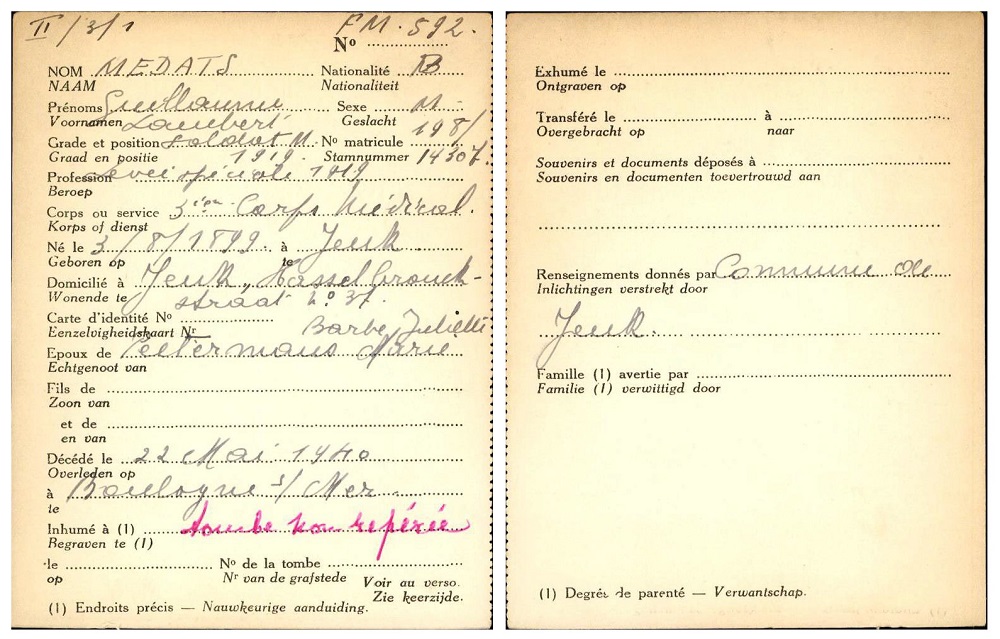 II/3/1
FM. 592.
Nº
NOM MEDATS Nationalité B
NAAM Nationaliteit
Prénoms Guillaume Sexe M -
Voornamen Lambert Geslacht
198/
Grade et position soldat M. Nº matricule
Graad en positie 1919. Stamnummer 14307.
Profession Levée spéciale 1919
Beroep
Corps ou service 3ième Corps Médical.
Korps of dienst
Né le 3/8/1899. à Jenk
Geboren op te
Domicilié à Jenk, Hasseltbrouck-
Wonende te straat Nº 37.
Carte d'identité Nº
Eenzelvigheidskaart Nr Barbe, Juliette
Epoux de Peetermans Marie
Echtgenoot van
Fils de
Zoon van
et de
en van
Décédé le 22 Mai 1940
Overleden op
à Boulogne s/ Mer
te
Inhumé à (1) tombe non repérée
Begraven te (1)
le Nº de la tombe
op Nr van de grafstede
Voir au verso.
Zie keerzijde.
(1) Endroits précis — Nauwkeurige aanduiding.
Exhumé le
Ontgraven op
Transféré le à
Overgebracht op naar
Souvenirs et documents déposés à
Souvenirs en documenten toevertrouwd aan
Renseignements donnés par Commune de
Inlichtingen verstrekt door
Jenk.
Famille (1) avertie par
Familie (1) verwittigd door
(1) Degrés de parenté — Verwantschap.